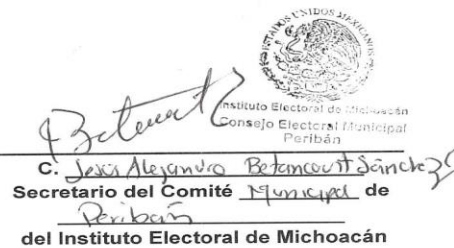 ESTADOS UNIDOS MEXICANOS
Instituto Electoral de Michoacán
Consejo Electoral Municipal
Peribán
C. Jesús Alejandro Betancourt Sánchez
Secretario del Comité Municipal de
Peribán
del Instituto Electoral de Michoacán